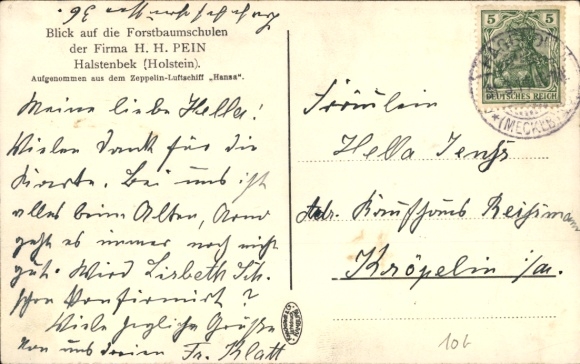 36.
Blick auf die Forstbaumschulen
der Firma H. H. PEIN
Halstenbek (Holstein).
Aufgenommen aus dem Zeppelin-Luftschiff „Hansa“.
Meine liebe Hella!
Vielen Dank für die
Karte. Bei uns ist
alles beim Alten,
geht es immer noch nicht
gut. Wird Lisbeth Sch.
schon konfirmiert?
Viele herzliche Grüße
von uns dreien Fr. Klatt
5 5
DEUTSCHES REICH
(MECKLB
Fräulein
Hella Jenß
Adr. Kaufhaus
Kröpelin i/M.
106